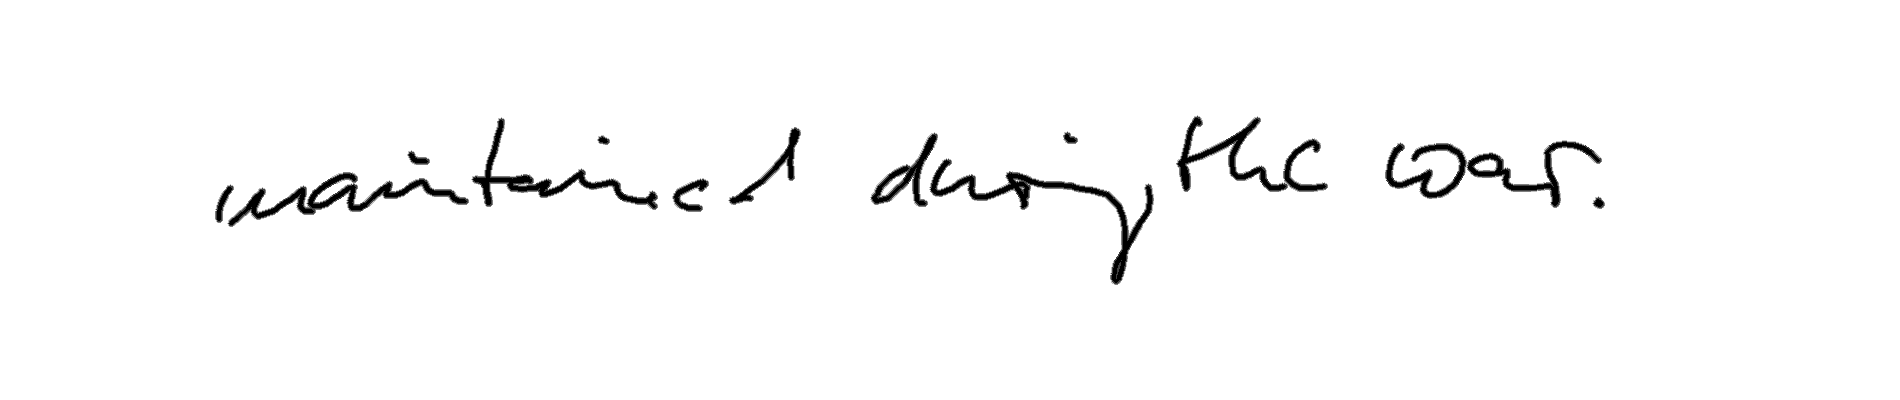 maintained during the war.